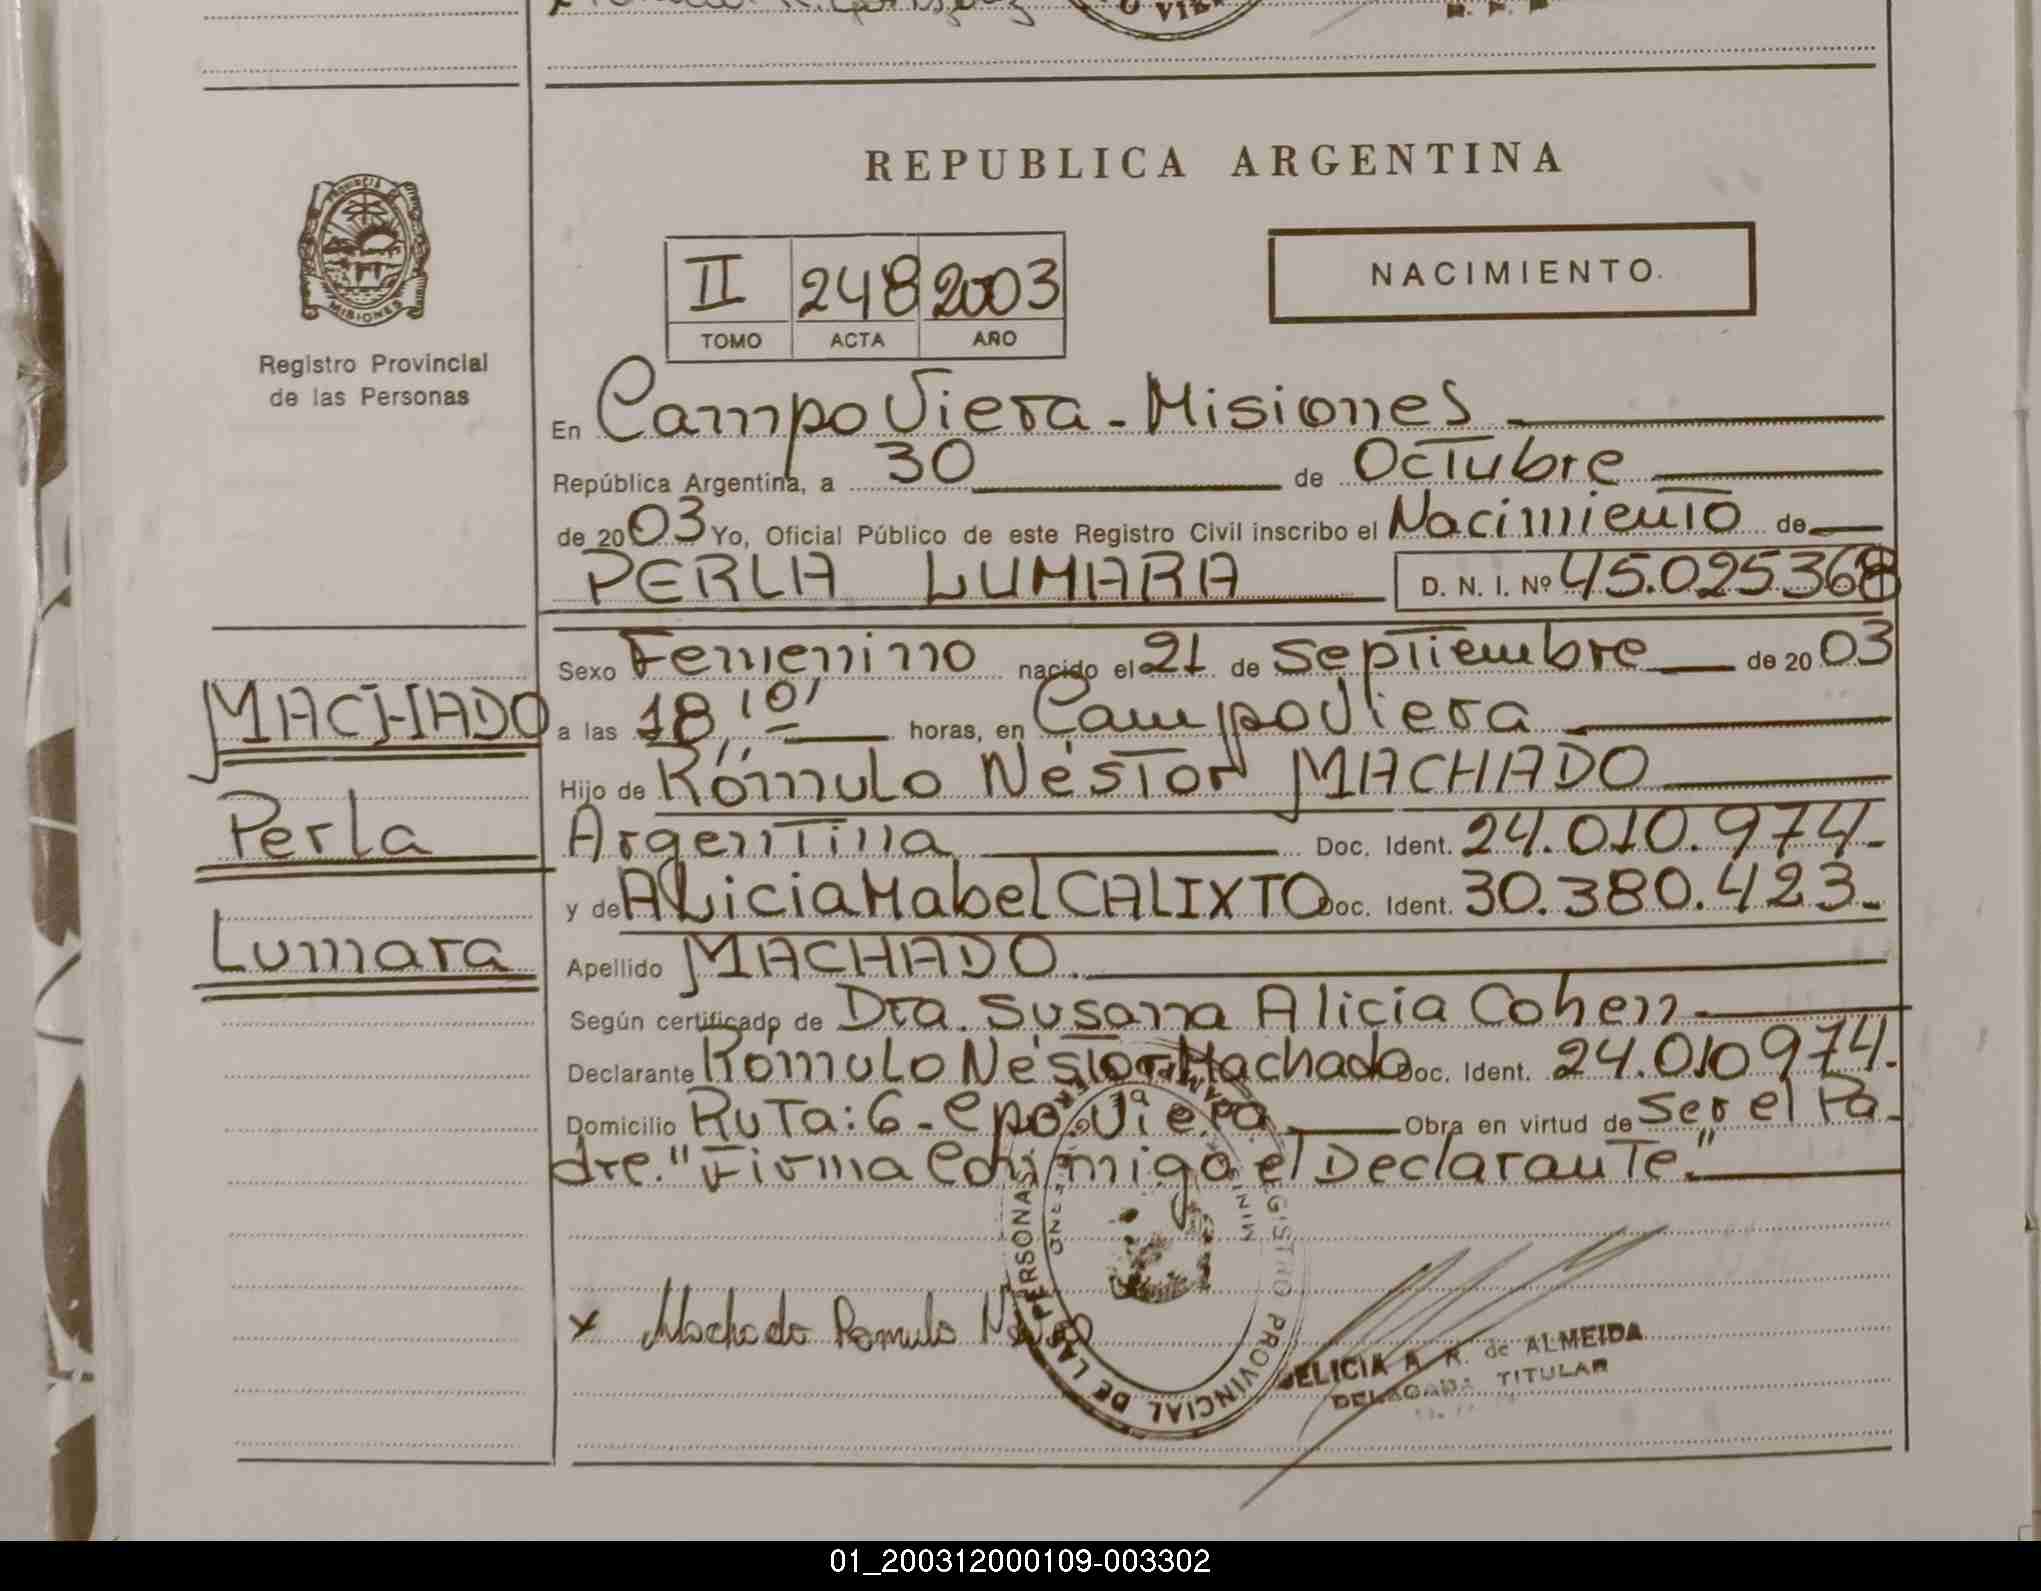 REPUBLICA ARGENTINA
PROVINCIA DE
MISIONES
Registro Provincial
de las Personas
II 248 2003
TOMO ACTA AÑO
NACIMIENTO.
En Campo Viera - Misiones
República Argentina, a 30 de Octubre
de 2003 Yo, Oficial Público de este Registro Civil inscribo el Nacimiento de
PERLA LUMARA D. N. I. Nº 45.025368
MACHADO
Perla
Lumara
Sexo Femenino nacido el 21 de Septiembre de 2003
a las 18,10' horas, en Campo Viera
Hijo de Rómulo Néstor MACHADO
Argentina Doc. Ident. 24.010.974.-
y de ALicia Mabel CALIXTO Doc. Ident. 30.380.423.-
Apellido MACHADO.
Según certificado de Dra. Susana Alicia Cohen
Declarante Rómulo Néstor Machado Doc. Ident. 24.010974.
Domicilio Ruta: 6 - Cpo. Viera. Obra en virtud de Ser el Pa-
dre. "Firma Conmigo el Declarante."
REGISTRO PROVINCIAL DE LAS PERSONAS
x Machado Romulo
DELICIA A. R. de ALMEIDA
DELEGADA TITULAR
01_200312000109-003302